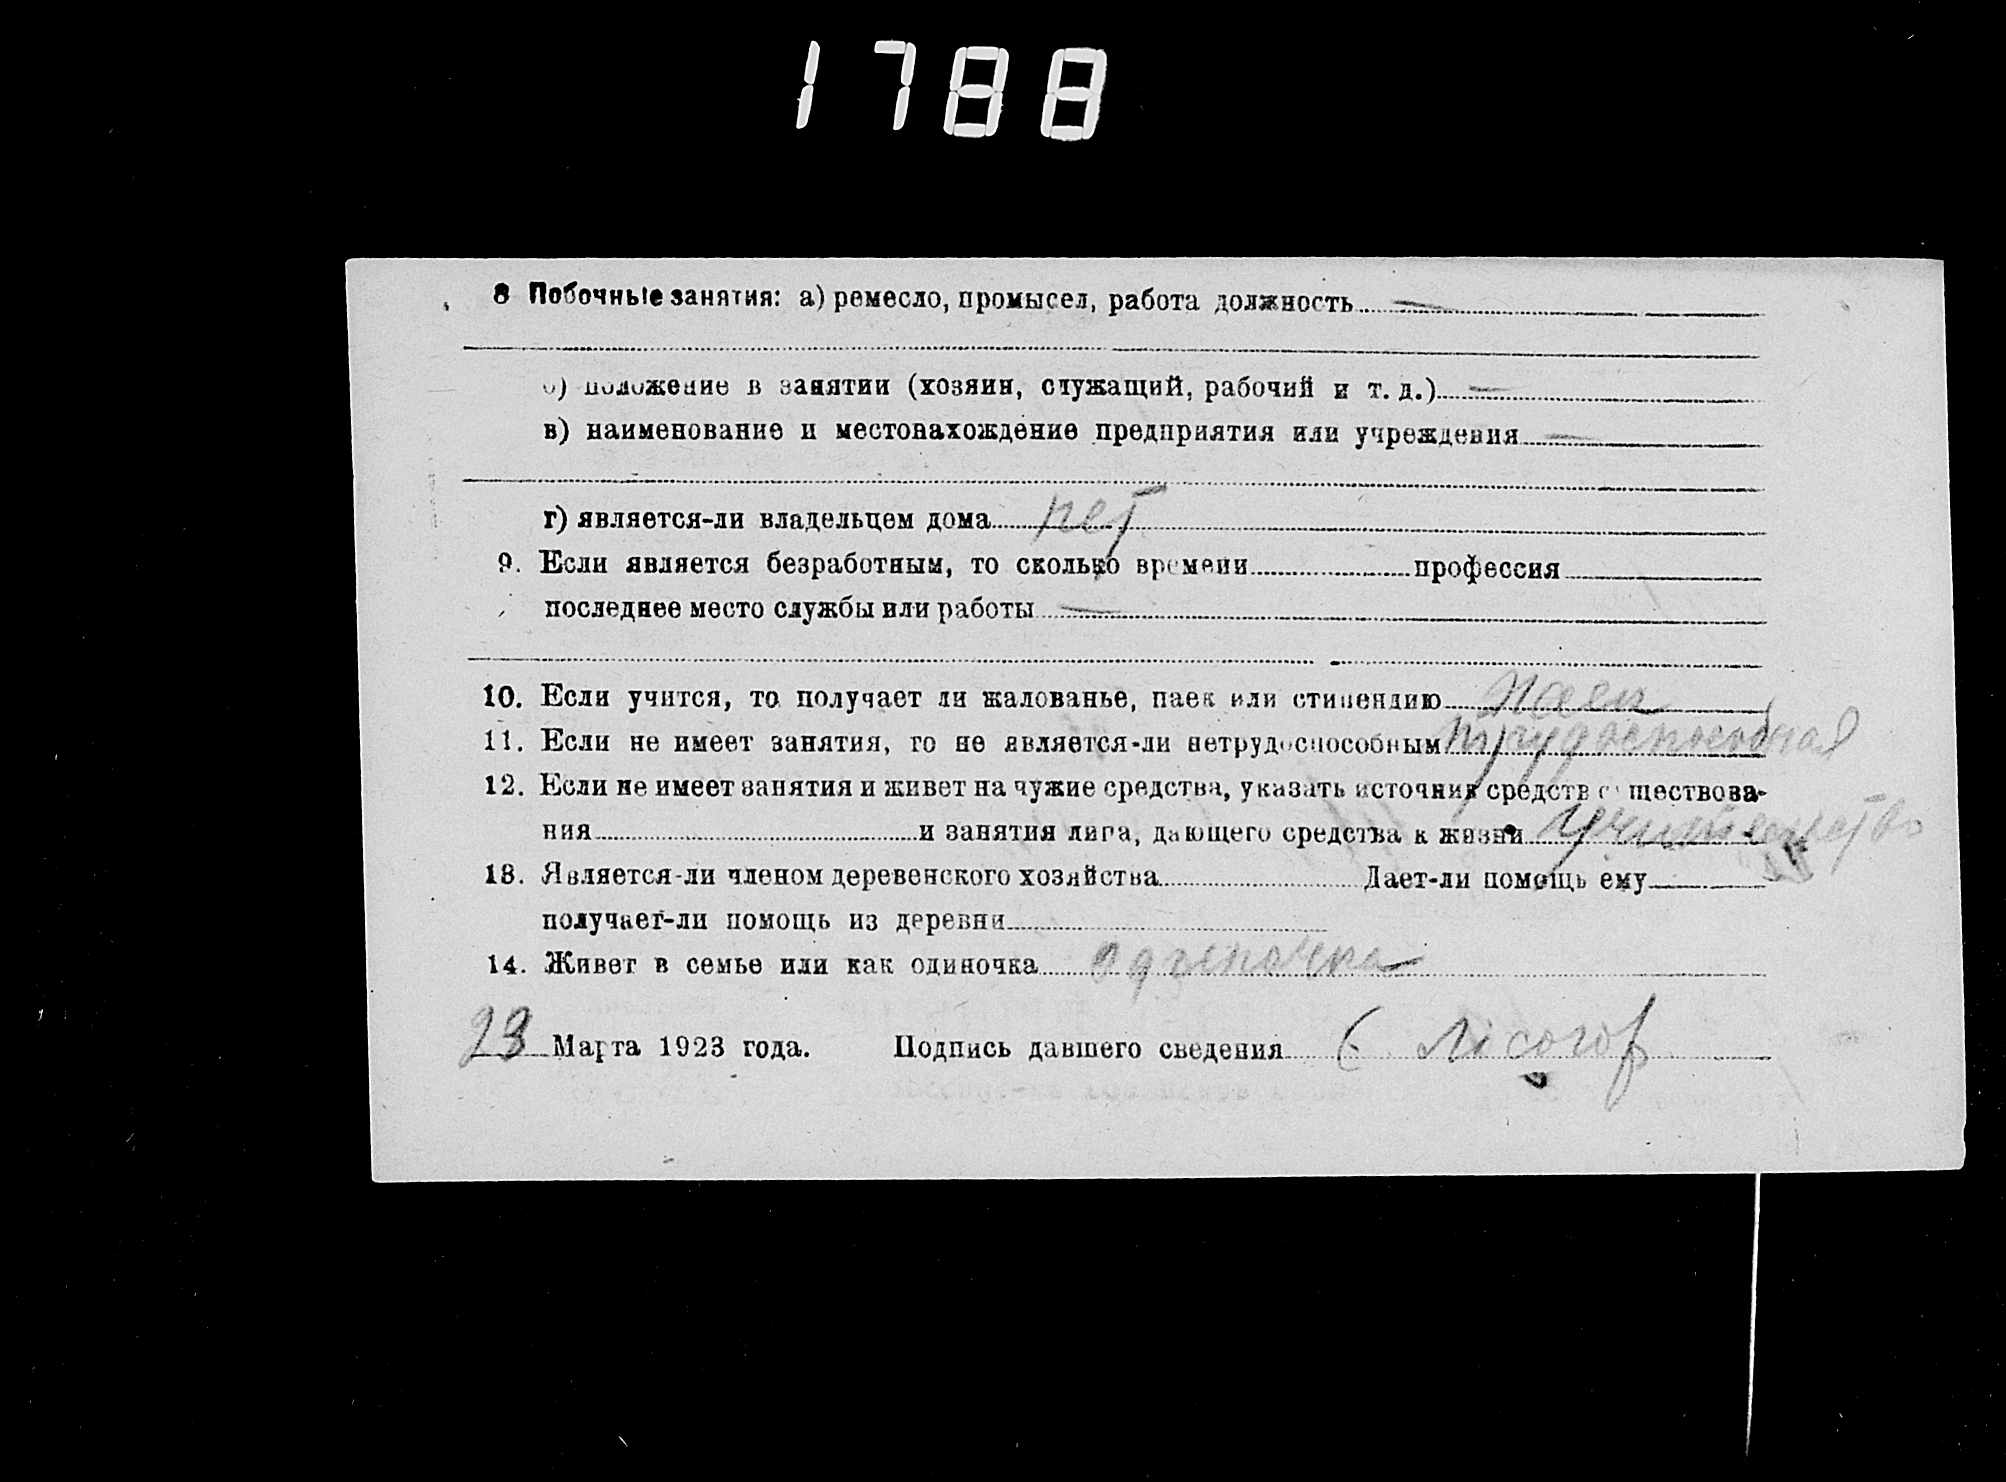 1788
8 Побочные занятия: а) ремесло, промысел, работа должность —
б) положение в занятии (хозяин, служащий, рабочий и т. д.) —
в) наименование и местонахождение предприятия или учреждения —
г) является-ли владельцем дома нет
9. Если является безработным, то сколько времени профессия
последнее место службы или работы —
10. Если учится, то получает ли жалованье, паек или стипендию паек
11. Если не имеет занятия, то не является-ли нетрудоспособным трудоспособная
12. Если не имеет занятия и живет на чужие средства, указать источник средств существова-
ния и занятия лица, дающего средства к жизни
13. Является-ли членом деревенского хозяйства Дает-ли помощь ему
получает-ли помощь из деревни
14. Живет в семье или как одиночка одиночка
23 Марта 1923 года. Подпись давшего сведения Лісогор